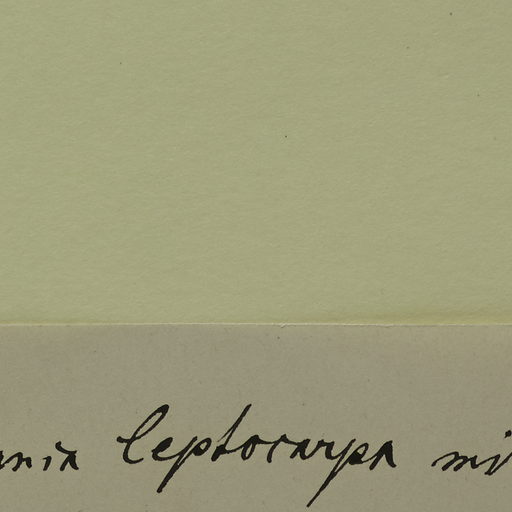 ania leptocarpa mi